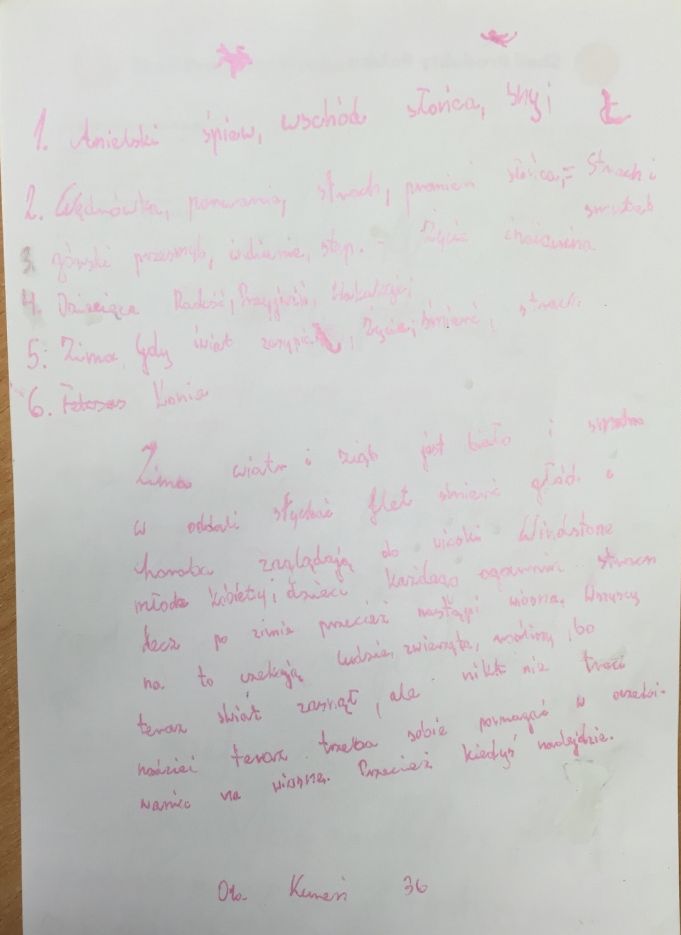 1. Anielski śpiew, wschód słońca, sny i
2. Wędrówka, porwania, strach, promień słońca, = Strach i
smutek
3. górski przesmyk, stęp. - Życie
4. Dziecięca Radość, Przyjaźń,
5. Zima, Gdy świat zasypia, Życie, śmierć, strach.
6. Konia
Zima wiatr i ziąb jest biało i
w oddali słychać flet śmierć głód i
horoba zaglądają do wioski Windstone
młode kobiety i dzieci każdego ogarnia strach
lecz po zimie przecież nastąpi wiosna, Wszyscy
na to czekają ludzie, zwierzęta, rośliny, bo
teraz świat zasnął, ale nikt nie traci
nadziei teraz trzeba sobie pomagać w oczeki-
waniu na wiosnę. Przecież kiedyś nadejdzie.
36